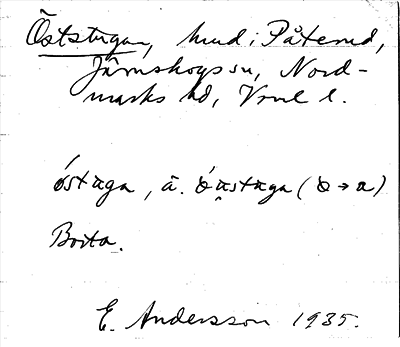 Öststugan, hmd i Påterud,
Järnskogs sn, Nord-
marks hd, Vrml l.
óstuga, ä.
Borta.
E. Andersson 1935.